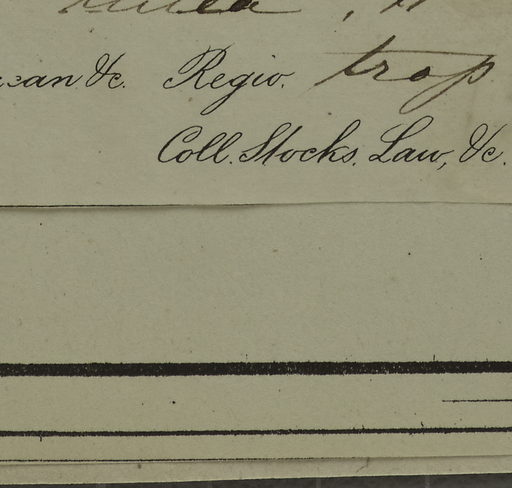 &c. Regio. trop
Coll. Stocks, Law, &c.